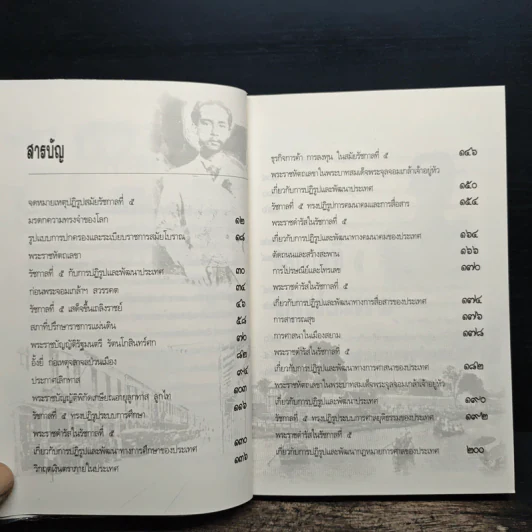 สารบัญ
จดหมายเหตุปฏิรูปสมัยรัชกาลที่ ๕
มรดกความทรงจำของโลก ๑๒
รูปแบบการปกครองและระเบียบราชการสมัยโบราณ ๑๘
พระราชหัตถเลขา
รัชกาลที่ ๕ กับการปฏิรูปและพัฒนาประเทศ ๓๐
ก่อนพระจอมเกล้าฯ สวรรคต ๓๔
รัชกาลที่ ๕ เสด็จขึ้นเถลิงราชย์ ๔๖
สภาที่ปรึกษาราชการแผ่นดิน ๕๘
พระราชบัญญัติรัฐมนตรี รัตนโกสินทร์ศก ๗๐
อั้งยี่ ก่อเหตุจลาจลป่วนเมือง
ประกาศเลิกทาส
พระราชบัญญัติพิกัดเกษียณอายุลูกทาส ลูกไท ๑๐๓
รัชกาลที่ ๕ ทรงปฏิรูประบบการศึกษา ๑๑๖
พระราชดำรัสในรัชกาลที่ ๕
เกี่ยวกับการปฏิรูปและพัฒนาทางการศึกษาของประเทศ ๑๓๐
วิกฤตเงินตราภายในประเทศ ๑๓๖
ธุรกิจการค้า การลงทุน ในสมัยรัชกาลที่ ๕ ๑๔๖
พระราชหัตถเลขาในพระบาทสมเด็จพระจุลจอมเกล้าเจ้าอยู่หัว
เกี่ยวกับการปฏิรูปและพัฒนาประเทศ ๑๕๐
รัชกาลที่ ๕ ทรงปฏิรูปการคมนาคมและการสื่อสาร ๑๕๔
พระราชดำรัสในรัชกาลที่ ๕
เกี่ยวกับการปฏิรูปและพัฒนาทางคมนาคมของประเทศ ๑๖๔
ตัดถนนและสร้างสะพาน ๑๖๖
การไปรษณีย์และโทรเลข ๑๗๐
พระราชดำรัสในรัชกาลที่ ๕
เกี่ยวกับการปฏิรูปและพัฒนาทางการสื่อสารของประเทศ ๑๗๔
การสาธารณสุข ๑๗๖
การศาสนาในเมืองสยาม ๑๗๘
พระราชดำรัสในรัชกาลที่ ๕
เกี่ยวกับการปฏิรูปและพัฒนาทางการศาสนาของประเทศ ๑๘๒
พระราชหัตถเลขาในพระบาทสมเด็จพระจุลจอมเกล้าเจ้าอยู่หัว
เกี่ยวกับการปฏิรูปและพัฒนาประเทศ ๑๙๐
รัชกาลที่ ๕ ทรงปฏิรูประบบการศาลยุติธรรมของประเทศ ๑๙๒
พระราชดำรัสในรัชกาลที่ ๕
เกี่ยวกับการปฏิรูปและพัฒนากฎหมายการศาลของประเทศ ๒๐๐